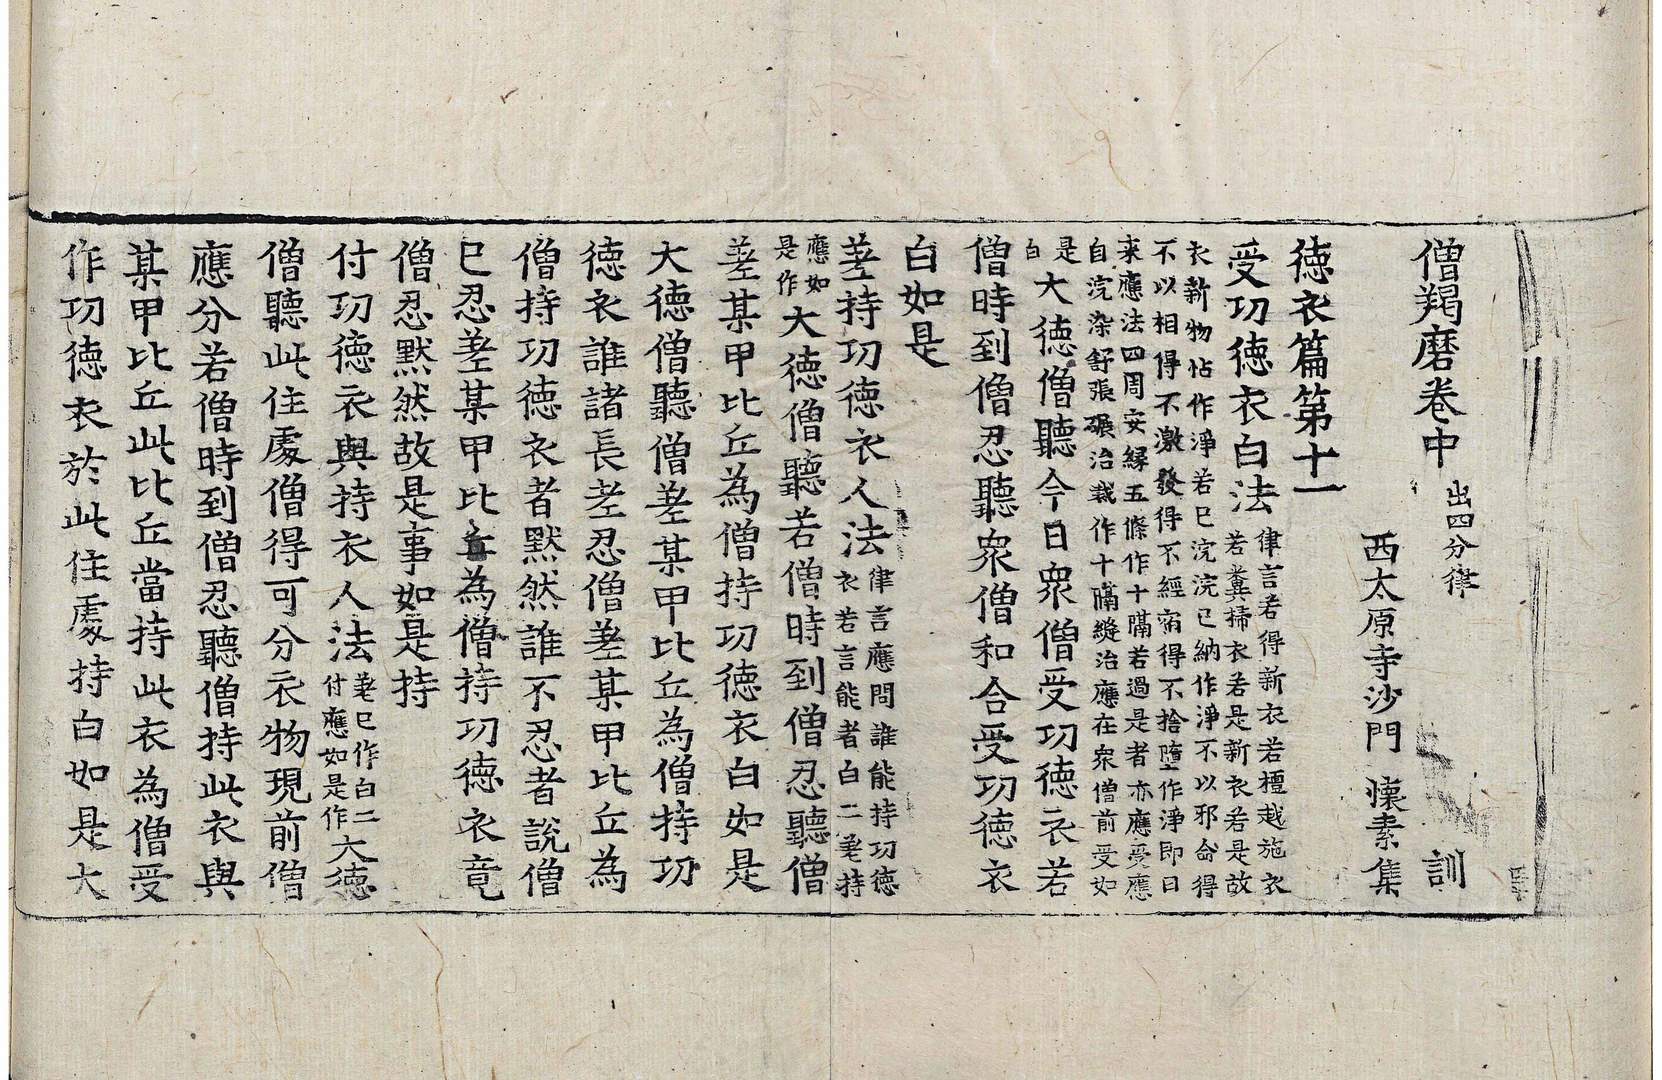 僧羯磨卷中 出四分律 訓
西太原寺沙門 懷素集
德衣篇第十一
受功德衣白法 律言若得新衣若檀越施衣
若糞掃衣若是新衣若是故
衣新物帖作淨若已浣浣已納作淨不以邪命得
不以相得不激發得不經宿得不捨墮作淨即日
来應法四周安縁五條作十隔若過是者亦應受應
自浣染舒張碾治裁作十隔縫治應在衆僧前受如
是
白 大德僧聽今日衆僧受功德衣若
僧時到僧忍聽衆僧和合受功德衣
白如是
差持功德衣人法 律言應問誰能持功德
衣若言能者白二差持
應如
是作 大德僧聽若僧時到僧忍聽僧
差某甲比丘為僧持功德衣白如是
大德僧聽僧差某甲比丘為僧持功
德衣誰諸長老忍僧差某甲比丘為
僧持功德衣者默然誰不忍者說僧
已忍差某甲比丘為僧持功德衣竟
僧忍默然故是事如是持
付功德衣與持衣人法 差已作白二
付應如是作 大德
僧聽此住處僧得可分衣物現前僧
應分若僧時到僧忍聽僧持此衣與
某甲比丘此比丘當持此衣為僧受
作功德衣於此住處持白如是大